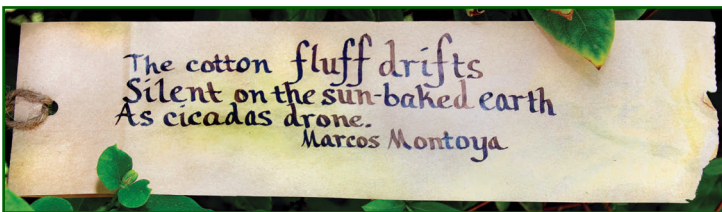 The cotton fluff drifts
Silent on the sun-baked earth
As cicadas drone.
Marcos Montoya